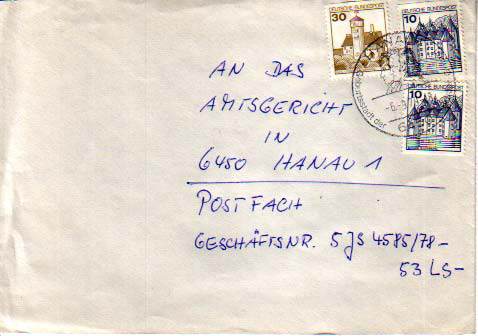 30
DEUTSCHE BUNDESPOST
10
DEUTSCHE BUNDESPOST
10
DEUTSCHE BUNDESPOST
AN DAS
AMTSGERICHT
IN
6450 HANAU 1
POSTFACH
GESCHÄFTSNR. 5 JS 4585/78-
53 LS-